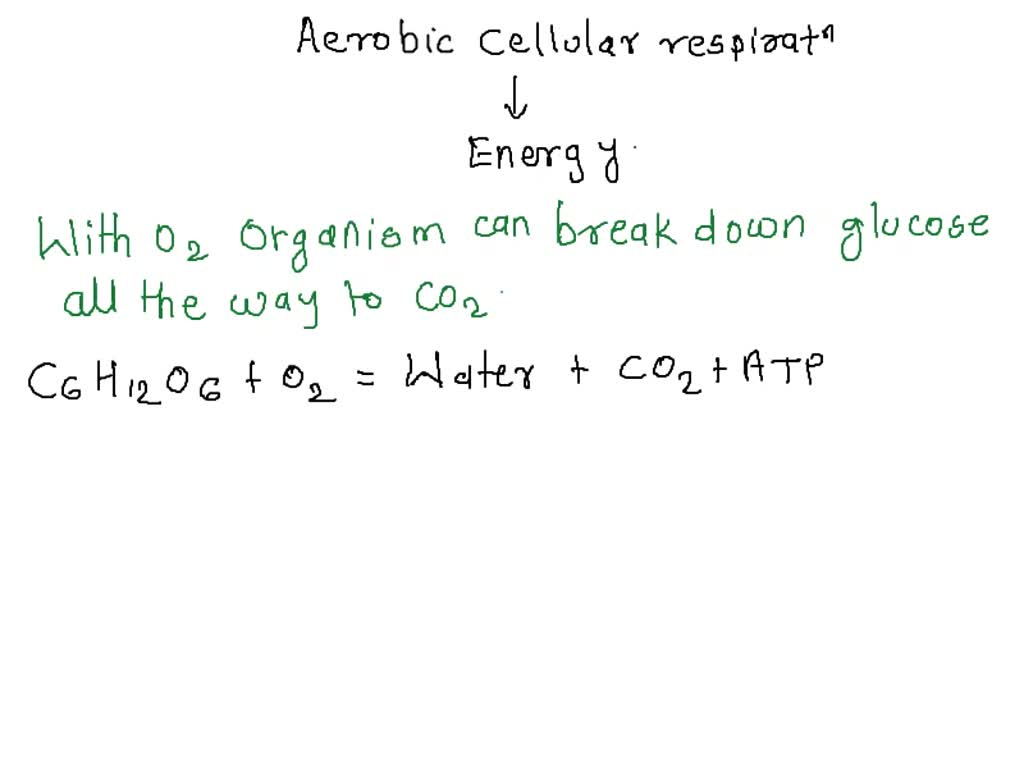 Aerobic cellular respiratn
↓
Energy
With O2 organism can break down glucose
all the way to CO2
C6H12O6 + O2 = Water + CO2 + ATP